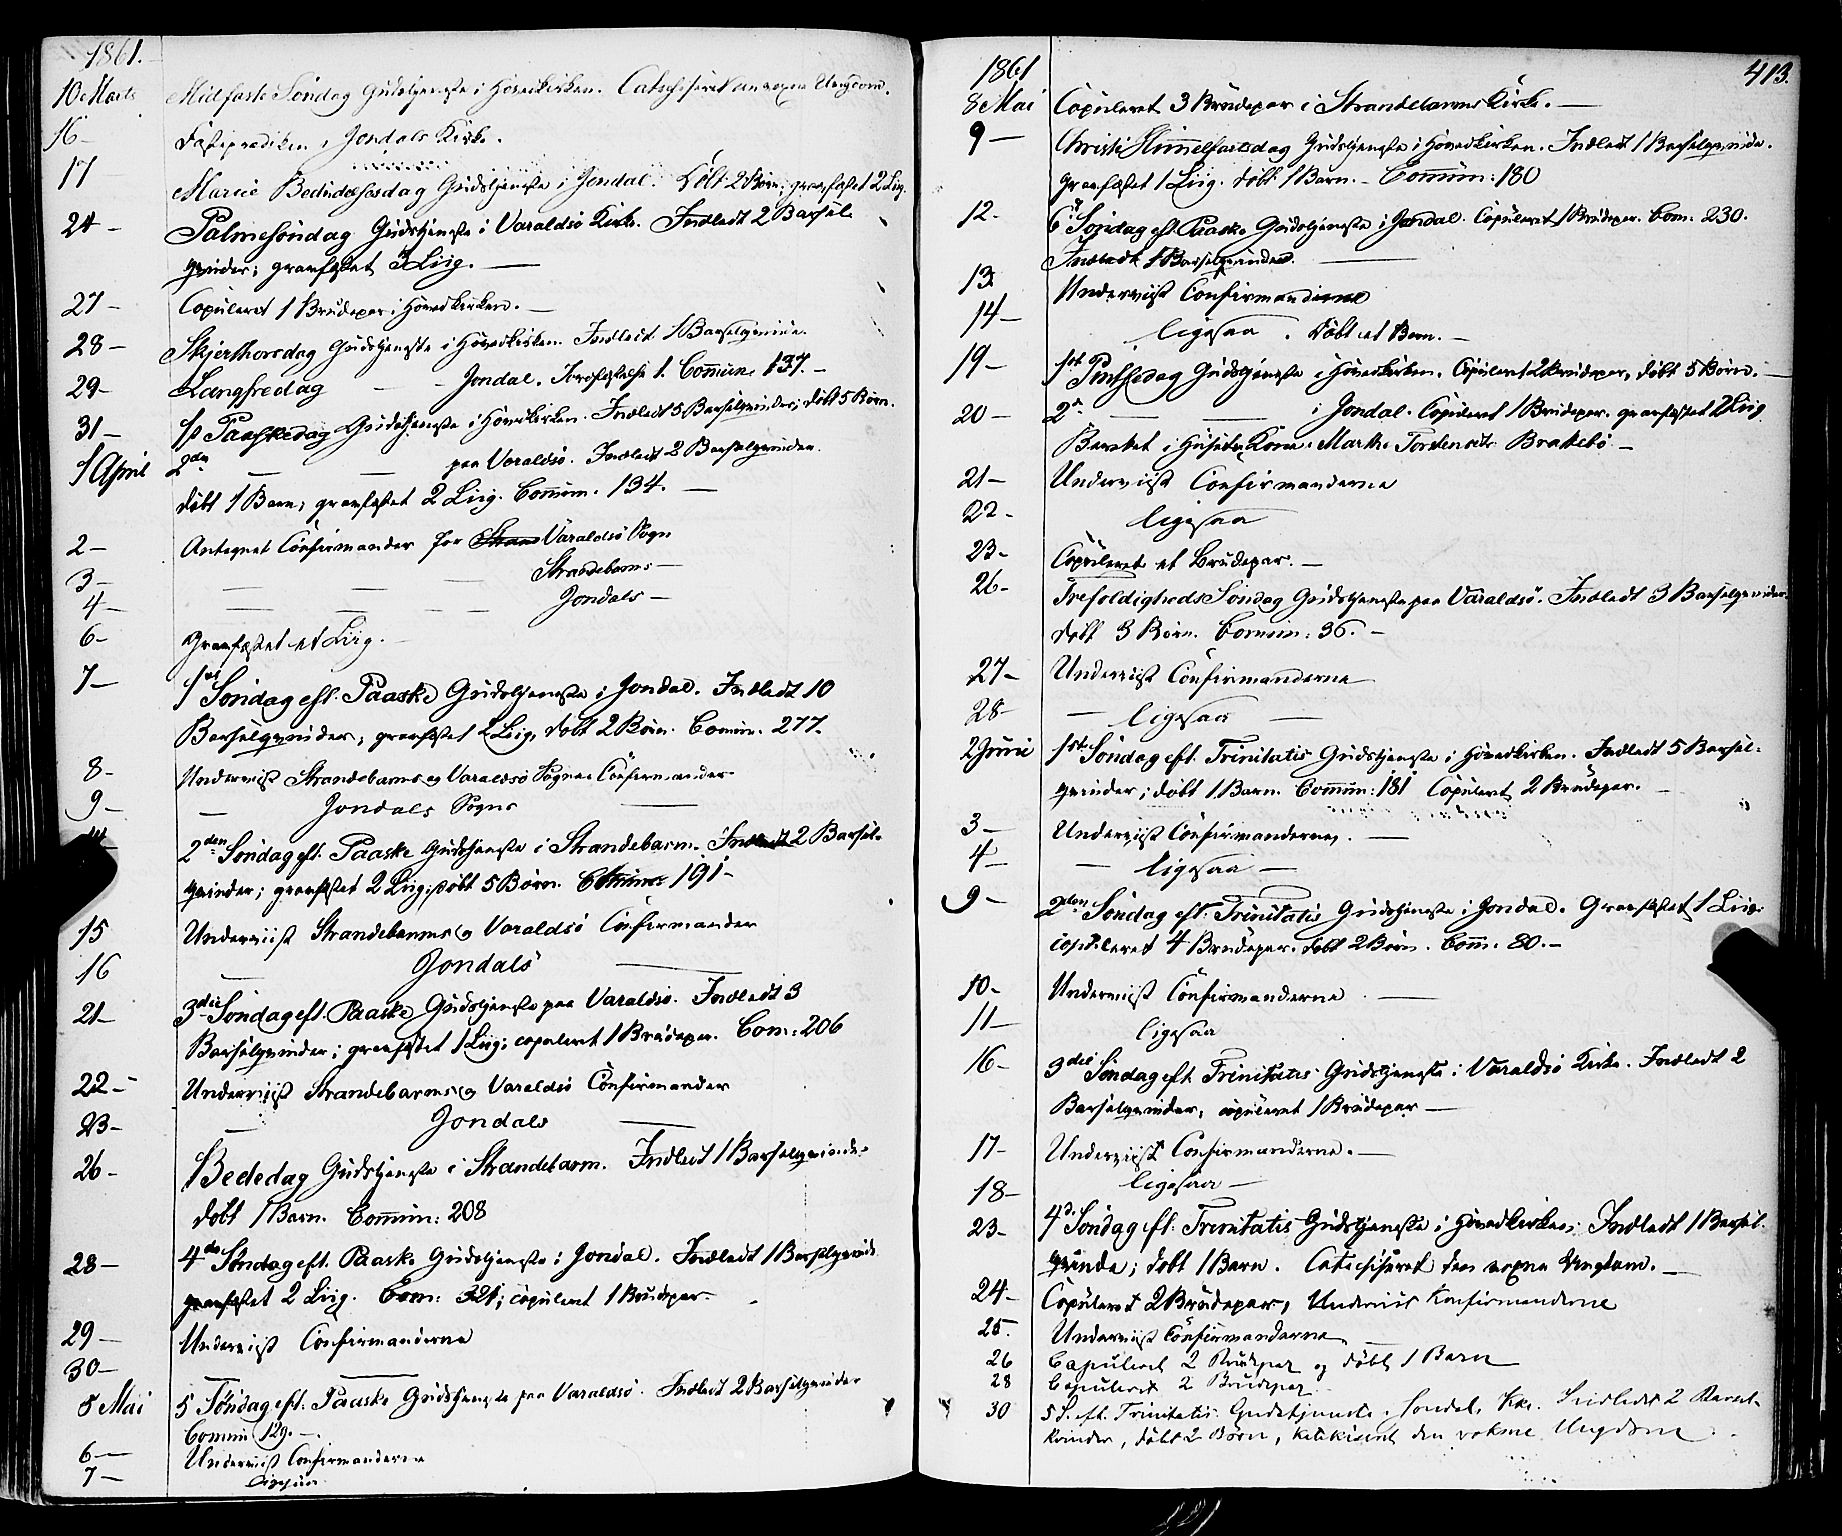 1861.
10 Marts Midfaste Søndag Gudstjeneste i Hovedkirken. Catechiseret den voxne Ungdom.
16 – Fasteprædiken i Jondals Kirke.
17 Mariæ Bebudelsesdag Gudstjeneste i Jondal. Døbt 2 Børn; graafæstet 2 Liig.
24 – Palmesøndag Gudstjeneste i Varaldsø Kirke. Indledt 2 Barsel-
qvinder; graafæstet 3 Liig. –
27 – Copuleret 1 Brudepar i Hovedkirken. –
28 – Skjerthorsdag Gudstjeneste i Hovedkirken. Indledt 1 Barselqvinde.
29 – Langfredag – – Jondal. 1. Commun. 137. –
31 – 1ste Paaskedag Gudstjeneste i Hovedkirken. Indledt 5 Barselqvinder; døbt 5 Børn.
1 April 2den – – paa Varaldsø. Indledt 2 Barselqvinder.
døbt 1 Barn; graafæstet 2 Liig. Commun. 134. –
2 – Antegnet Confirmander for Varaldsø Sogn
3 – – – – Strandebarms –
4 – – – – Jondals –
6 – Graafæstet et Liig. –
7 – 1ste Søndag eft. Paaske Gudstjeneste i Jondal. Indledt 10
Barselqvinder; graafæstet 2 Liig, døbt 2 Børn. Commun. 277.
8 – Underviist Strandebarms og Varaldsø Sognes Confirmander
9 – – Jondals Sogns –
14 – 2den Søndag eft. Paaske Gudstjeneste i Strandebarm. Indledt 2 Barsel-
qvinder; graafæstet 2 Liig; døbt 5 Børn. Commun. 191 –
15 Underviist Strandebarms og Varaldsø Confirmander
16 – Jondals –
21 – 3die Søndag eft. Paaske Gudstjeneste paa Varaldsø. Indledt 3
Barselqvinder; graafæstet 1 Liig; copuleret 1 Brudepar. Com: 206
22 – Underviist Strandebarms og Varaldsø Confirmander
23 – – Jondals –
26 – Bededag Gudstjeneste i Strandebarm. Indledt 1 Barselqvinde.
døbt 1 Barn. Commun: 208
28 – 4de Søndag eft. Paaske Gudstjeneste i Jondal. Indledt 1 Barselqvinde
graafæstet 2 Liig. Com: 321; copuleret 1 Brudepar.
29 – Underviist Confirmanderne
30 – – –
5 Mai 5 Søndag eft. Paaske Gudstjeneste paa Varaldsø. Indledt 2 Barselqvinder
Commun 129. –
6 – Underviist Confirmanderne
7 – Ligesaa
1861 413.
8 Mai Copuleret 3 Brudepar i Strandebarms Kirke. –
9 – Christi Himmelfartsdag Gudstjeneste i Hovedkirken. Indledt 1 Barselqvinde.
graafæstet 1 Liig. døbt 1 Barn. – Commun: 180
12. 6te Søndag eft Paaske Gudstjeneste i Jondal. Copuleret 1 Brudepar. Com. 230.
Indledt 1 Barselqvinde. –
13. Underviist Confirmanderne
14 – ligesaa. Døbt et Barn. –
19 – 1ste Pintsedag Gudstjeneste i Hovedkirken. Copuleret 2 Brudepar, døbt 5 Børn. –
20 – 2den – i Jondal. Copuleret 1 Brudepar. graafæstet 2 Liig
Berettet i Huset Kone Marthe Torstensdtr Brattebø –
21 – Underviist Confirmanderne
22 – ligesaa
23 – Copuleret et Brudepar. –
26 – Trefoldigheds Søndag Gudstjeneste paa Varaldsø. Indledt 3 Barselqvinder
døbt 3 Børn. Commun: 36. –
27 – Underviist Confirmanderne
28 – – ligesaa –
2 Juni 1ste Søndag eft. Trinitatis Gudstjeneste i Hovedkirken. Indledt 5 Barsel-
qvinder; døbt 1 Barn. Commun: 181 Copuleret 2 Brudepar. –
3 – Underviist Confirmanderne. –
4 – – ligesaa –
9 – 2den Søndag eft. Trinitatis Gudstjeneste i Jondal. Graafæstet 1 Liig.
copuleret 4 Brudepar. døbt 2 Børn. Comm. 80. –
10 – Underviist Confirmanderne –
11 – ligesaa
16 – 3die Søndag eft Trinitatis Gudstjeneste i Varaldsø Kirke. Indledt 2
Barselqvinder, copuleret 1 Brudepar –
17 – Underviist Confirmanderne. –
18 – ligesaa –
23 – 4de Søndag eft. Trinitatis Gudstjeneste i Hovedkirken. Indledt 1 Barsel-
qvinde; døbt 1 Barn. Catechiseret den voxne Ungdom. –
24 – Copuleret 2 Brudepar, Underviist Konfirmanderne
25. Underviist Confirmanderne
26 Copuleret 2 Brudepar og døbt 1 Barn
28 Copuleret 2 Brudepar
30 5 S. eft. Trinitatis. Gudstjeneste i Jondal Kke. Indledet 2 Barsel-
kvinder, døbt 2 Børn, katekiseret den voksne Ungdom.